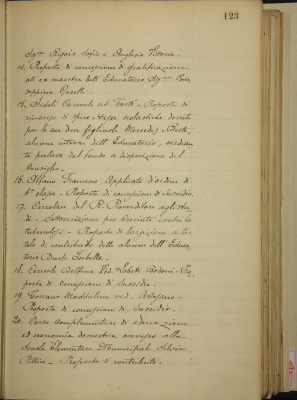 123
Sig.ne Rigois Sofia e Anglesio Vittoria.
14. Proposta di concessione di gratificazione
all'ex maestra dell'Educatorio Sig.na
Giuseppina Garelli.
15. Fedeli Carmela ved. Torti - Proposta di
rimborso di spese tasse scolastiche dovute
per le sue due figliuole Mercedes e Berta,
alunne interne dell'Educatorio, median
te prelievo dal fondo a disposizione del
Consiglio.
16. Alfano Francesco, Applicato d'ordine di
3ª classe - Proposta di concessione di sussidio.
17. Circolare del R. Provveditore agli stu
di - Sottoscrizione pro Crociata contro la
tubercolosi - Proposta di elargizione a ti
tolo di contributo delle alunne dell'Educa
torio Duch. Isabella.
18. Ved. Bodoni - Pro
posta di concessione di sussidio.
19. Toscano Maddalena ved. -
Proposta di concessione di sussidio.
20. Corso complementare di educazione
ed economia domestica annesso alla
Scuola Elementare Municipale Silvio
Pellico - Proposta di contributo.